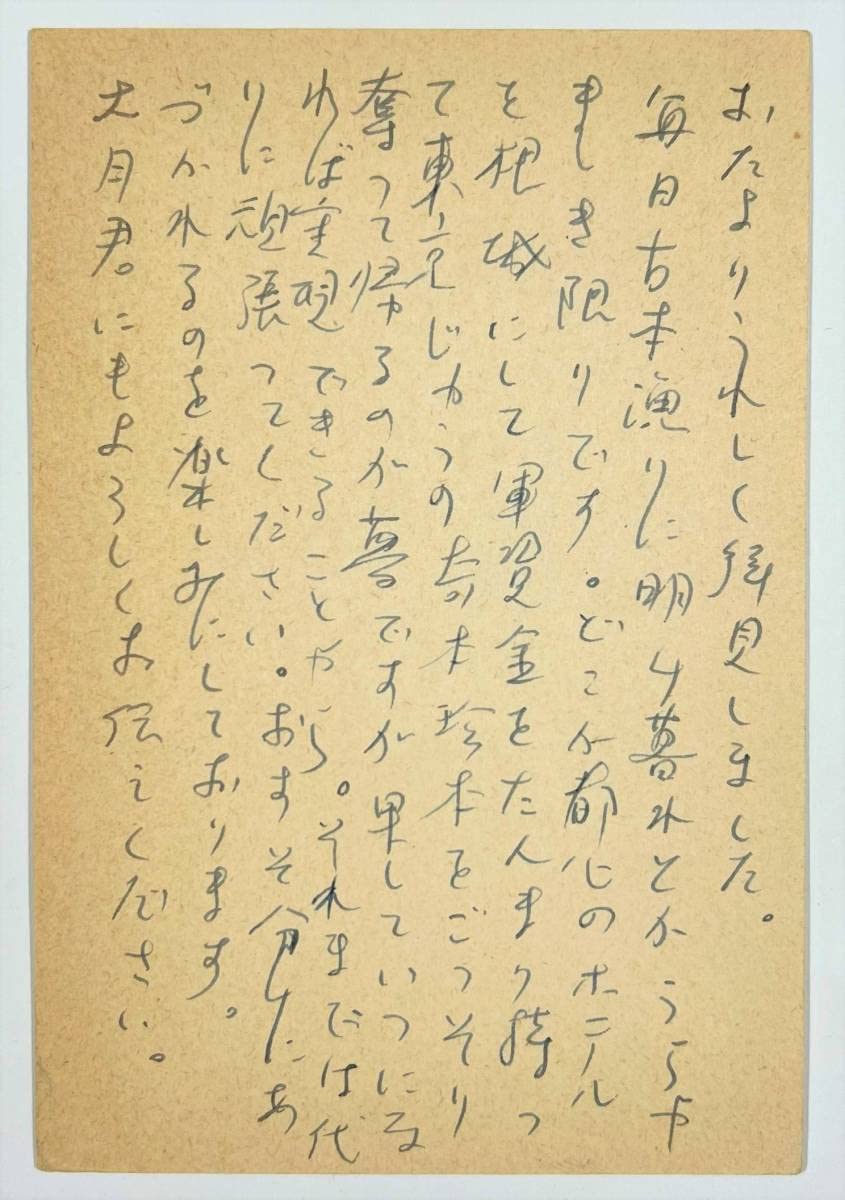 おたよりうれしく拝見しました。
毎日古本漁りに明け暮れとかうらや
ましき限りです。どこか都心のホテル
を根城にして軍資金をたんまり持っ
て東京じゅうの奇本珍本をごっそり
奪って帰るのが夢ですが果していつにな
れば実現できることやら。それまでは代
りに頑張ってください。おすそ分けにあ
づかれるのを楽しみにしております。
大月君にもよろしくお伝えください。